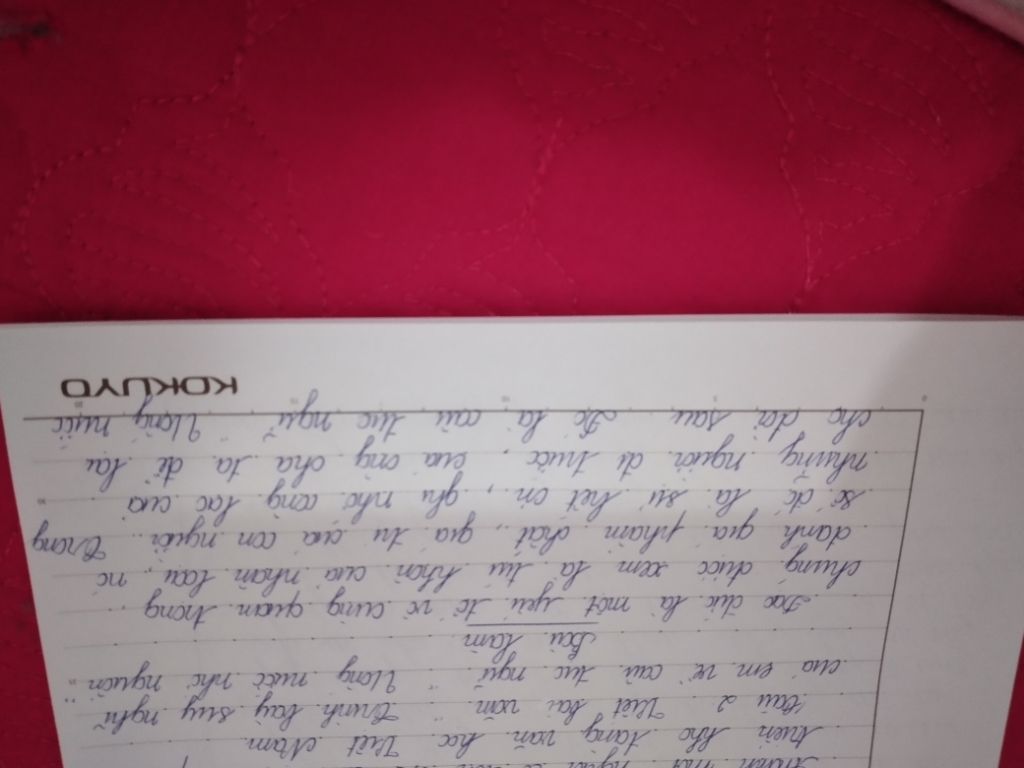 triển kho tàng văn học Việt Nam.
Câu 2 Viết bài văn : Trình bày suy nghĩ
của em về câu tục ngữ " Uống nước nhớ nguồn "
Bài làm
Đạo đức là một yếu tố vô cùng quan trọng,
chúng được xem là tu nhân của nhân loại, nó
đánh giá phẩm chất, giá trị của con người. Trong
số đó là sự biết ơn, ghi nhớ công lao của
những người đi trước, của ông cha ta để lại
cho đời sau. Đó là câu tục ngữ " Uống nước
KOKUYO